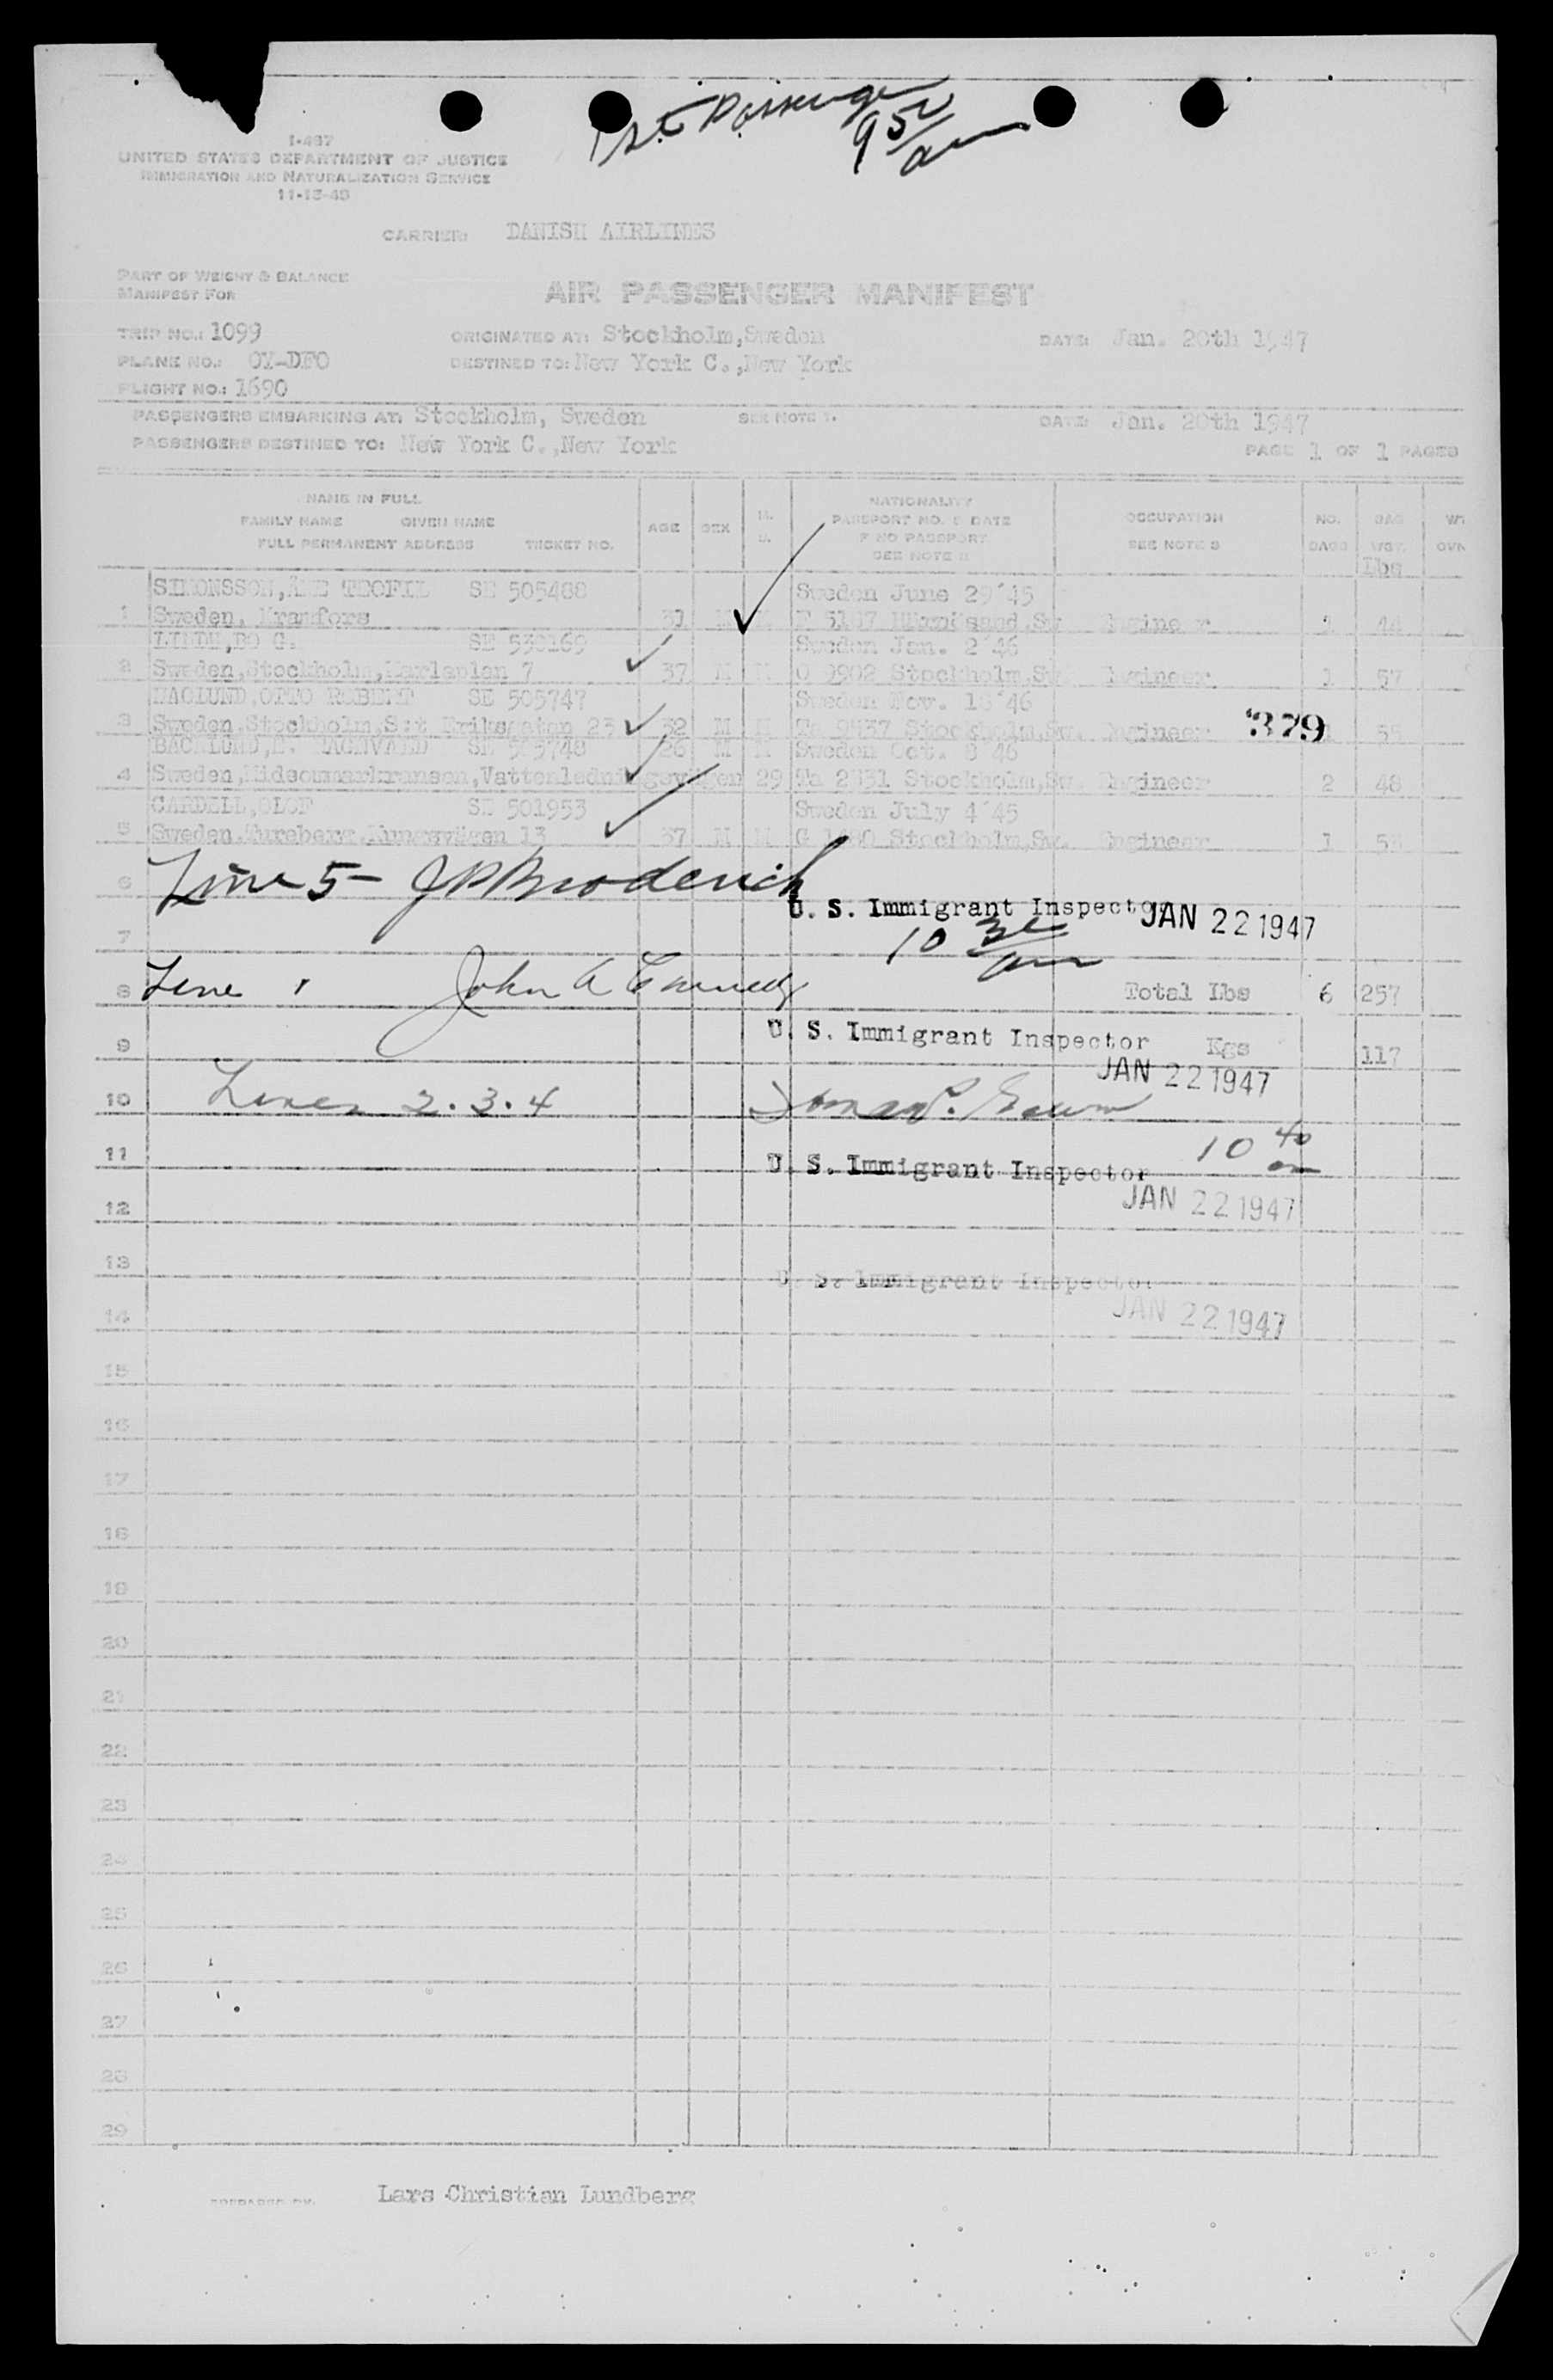 1st Passenger
9 52 am
I-487
UNITED STATES DEPARTMENT OF JUSTICE
IMMIGRATION AND NATURALIZATION SERVICE
CARRIER: DANISH AIRLINES
PART OF WEIGHT & BALANCE
MANIFEST FOR
AIR PASSENGER MANIFEST
TRIP NO.: 1099 ORIGINATED AT: Stockholm,Sweden DATE: Jan. 20th 1947
PLANE NO.: OY-DFO DESTINED TO: New York C.,New York
FLIGHT NO.: 1690
PASSENGERS EMBARKING AT: Stockholm, Sweden SEE NOTE 1. DATE: Jan. 20th 1947
PASSENGERS DESTINED TO: New York C.,New York PAGE 1 OF 1 PAGES
NAME IN FULL NATIONALITY
FAMILY NAME GIVEN NAME AGE SEX PASSPORT NO. & DATE OCCUPATION NO. BAG WT
FULL PERMANENT ADDRESS TICKET NO. IF NO PASSPORT SEE NOTE 3 BAGS WGT.
SEE NOTE 2 Lbs
SIMONSSON, TEOFIL SE 505488 Sweden June 29'45
1 Sweden, Kramfors 37 M Engineer 1 44
BO G. SE 530169 Sweden Jan. 2'46
2 Sweden,Stockholm,Karlaplan 7 37 M M Stockholm,Sw. Engineer 1 57
HAGLUND,OTTO ROBERT SE 505747 Sweden Nov.
3 Sweden,Stockholm,S:t Eriksgatan 23 32 M M Stockholm,Sw. Engineer 379 1 55
BACKLUND, SE 505748 26 M M Sweden Oct. 8'46
4 Sweden,Midsommarkransen,Vattenledningsvägen 29 Ta Stockholm,Sw. Engineer 2 48
CARDELL,OLOF SE 501953 Sweden July 4'45
5 Sweden,Tureberg,Kungsvägen 13 37 M M Stockholm,Sw. Engineer 1 53
6 Line 5 - JP Broderick
U. S. Immigrant Inspector JAN 22 1947
7 10 am
8 Line 1 John A Total Lbs 6 257
9 U. S. Immigrant Inspector Kgs 117
JAN 22 1947
10 Lines 2.3.4
11 U. S. Immigrant Inspector 10 40 am
12 JAN 22 1947
13 U. S. Immigrant Inspector
14 JAN 22 1947
15
16
17
18
19
20
21
22
23
24
25
26
27
28
29
PREPARED BY: Lars Christian Lundberg